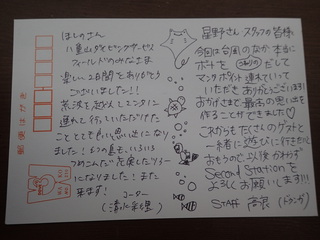 ほしのさん
八重山ダイビングサービス
フィールドのみなさま
楽しい2日間をありがとう
ございました!!
荒波を越えしマンタに
連れて行っていただけた
こととても良い思い出になり
ました!
になりました!また
来ます!
コーター
郵便はがき
星野さん スタッフの皆様
今回は台風のなか本当に
ボートを だして
マンタポイント連れていって
いただきありがとうございます!
おかげさまで最高の思い出を
作ることができました
これからもたくさんのゲストと
一緒に遊びに行きたいと
おもうので以後かわらず
Second Stationを
よろしくお願いします!!!
STAFF